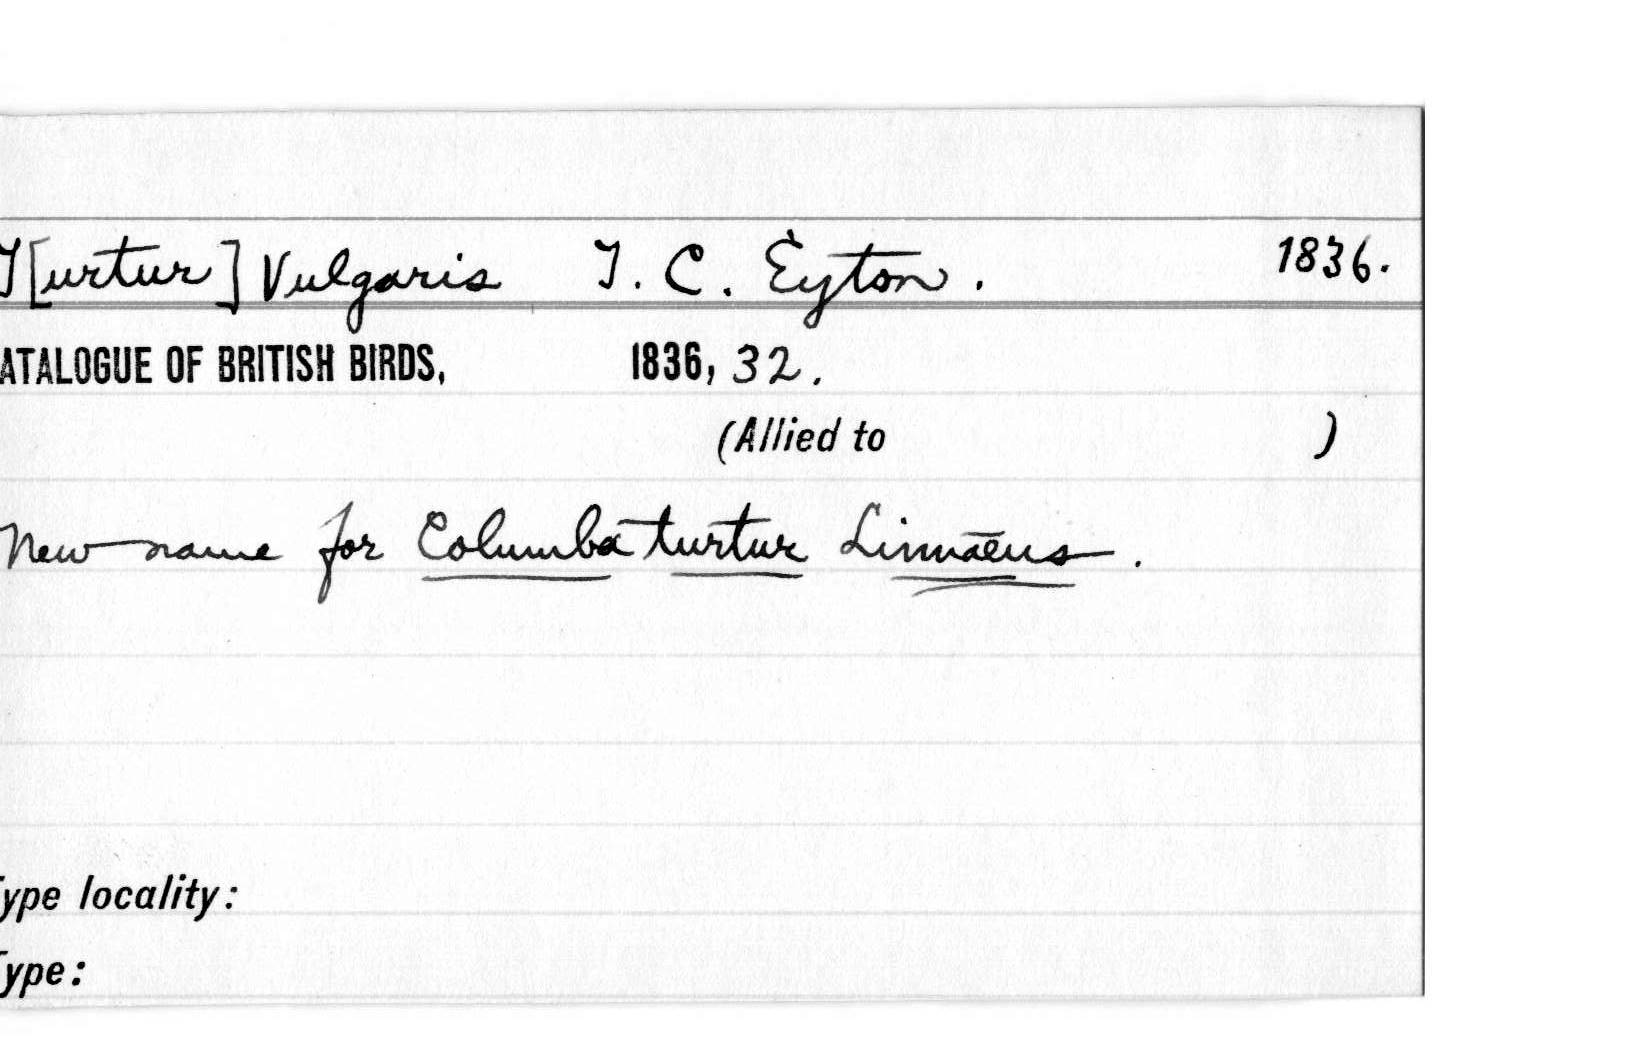 T[urtur] Vulgaris T. C. Eyton. 1836.
ATALOGUE OF BRITISH BIRDS, 1836, 32.
(Allied to )
New name for Columba turtur Linnaeus.
Type locality:
Type: